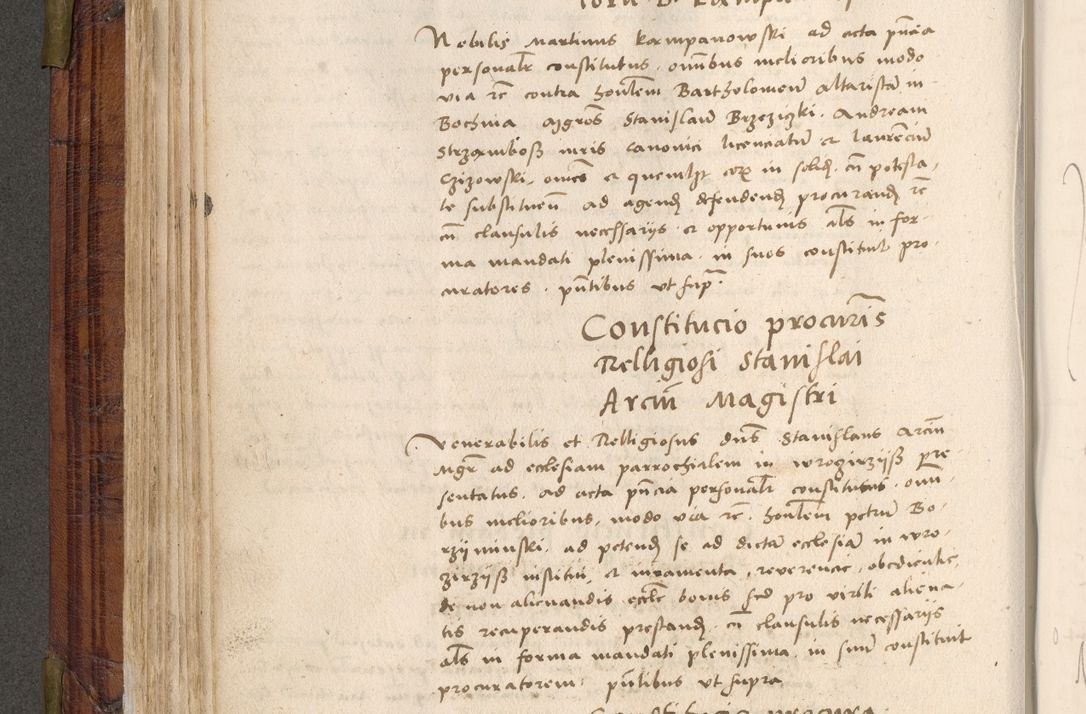 Nobilis Martinus Karmpanowski ad acta pn̄cia
personalr̄ constitutus, omībus melioribus modo
via rē contra honl̄em Bartholomeū altaristā in
Bochnia Mgrōs Stanislaū Brzeziczki, Andream
Strzamboß iuris canonici licenciatū et Laurenciū
Czizowski, om̄es et quemlꝫt eoꝝ in solid. cū potesta
te substituen̄ ad agend. defendend. procurand. rē
cū clausulis necessarijs et opportunis als̄ in for
ma mandati plenissima in suos constituit pro
curatores. pn̄tibus ut sup.
Constitucio procurīs
Relligiosi Stanislai
Arciū Magistri
Venerabilis et Relligiosus dn̄s Stanislaus Arciū
Mgr̄ ad ecclesiam parrochialem in Wrogirzijß pre
sentatus, ad acta pn̄cia personalr̄ constitutus, omī
bus melioribus, modo via rē. honl̄em petrū Bo
rzyminski, ad petend. se ad dictā ecclesiā in Wro
girzijß institui, et iuramenta, reverencie, obediencie,
de non alienandis eccl̄e bonis sed pro virili aliena
tis recuperandis prestand. cū clausulis necessarijs
als̄ in forma mandati plenissima in suū constituit
procuratorem pn̄tibus ut supra